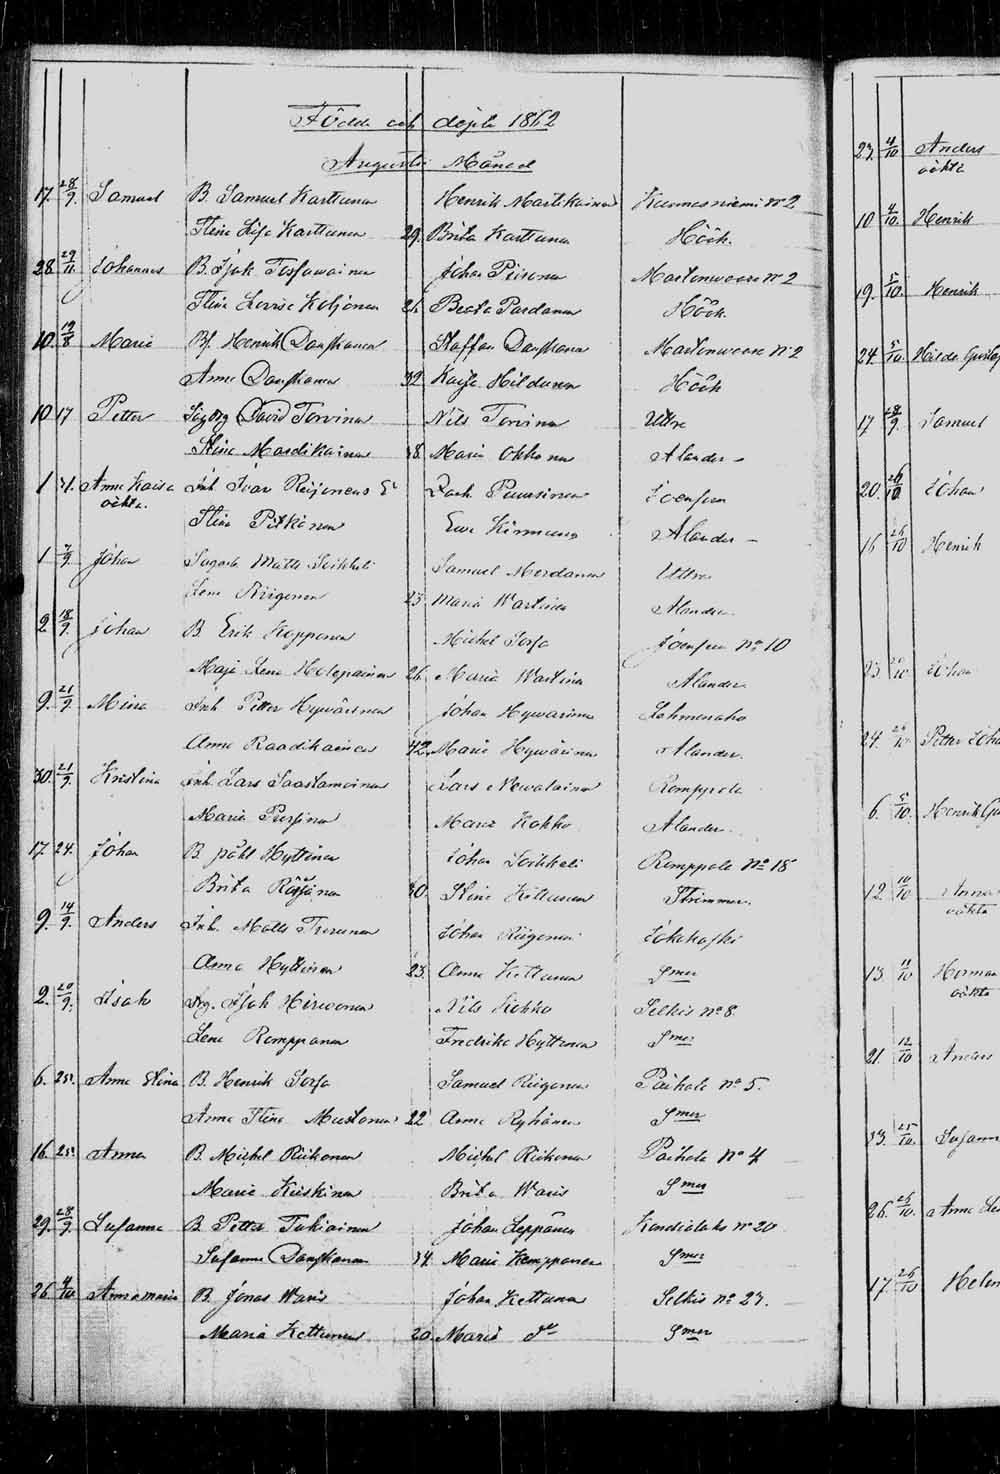 Födde och döpte 1862
Augusti Månad
17. 28/9. Samuel B. Samuel Karttunen Henrik Martikainen Kunnasniemi No 2
Stina Lisa Karttunen 29. Brita Karttunen Höök.
28 29/11. Johannes B. Isak Johan Piironen Martonvaara No 2
Stina Lovisa Koljonen 26. Beata Pardanen Höök
10. 19/8 Maria Bf. Henrik Danskanen Staffan Danskanen Martonvaara No 2
Anna Danskanen 39. Kaisa Hilduren Höök
10 17 Petter David Torvinen Nils Torvinen Uttra
Stina Mardikainen 38. Maria Okkonen Alander
1 31. Anna Kaisa Inh. Ivar Reijonens Joensuu
oäkta. Stina Pitkänen Eva Alander
1 7/9. Johan Matts Soikkeli Samuel Mordanen Uttra
Lena Riigonen 25. Maria Wartinen Alander
2 18/9. Johan B. Erik Kopponen Michel Sorsa Joensuu No 10
Maja Lena Holopainen 26. Maria Wartinen Alander
9. 21/9 Miina Inh Petter Hywärinen Johan Hywärinen Lehmenaho
Anna Raadikainen 42. Maria Hywärinen Alander.
30. 21/9. Kristina Inh. Lars Saastamoinen Lars Newalainen Romppala
Maria Pursinen Maria Kokko Alander.
17. 24. Johan B. Påhl Hyttinen Johan Soikkeli Romppala No 18
Brita 30. Stina Kettunen Strömmer.
9. 14/9. Anders Inh. Matts Turunen Johan Riigonen Jakokoski
Anna Hyttinen 23. Anna Kettunen Smer
2. 20/9. Isak Isak Hirwonen Nils Kokko Selkis No 8.
Lena Romppanen Fredrika Hyttinen Smer
6. 25. Anna Stina B. Henrik Sorsa Samuel Riigonen Paihola No 5.
Anna Stina Mustonen 22 Anna Ryhänen Smer
16. 25. Anna B. Michel Riikonen Michel Riikonen Paihola No 4
Maria Kiiskinen Brita Waris Smer
29. 28/9. Susanna B. Petter Tukiainen Johan Leppänen Kondiolaks No 20
Susanna Danskanen 34. Maria Kemppainen Smer
26. 4/10. Annamaria B. Jonas Waris Johan Kettunen Selkis No 27.
Maria Kettunen 20. Maria do Smer
23. 4/10 Anders
oäkta
10 4/10. Henrik
19. 5/10. Henrik
24. 5/10. Hilda
17 28/9. Samuel
20. 26/10 Johan
16 26/10 Henrik
23 Johan
24. Petter Joha
6. 5/10. Henrik
12. 10/10 Anna
oäkta
13. 11/10 Herman
oäkta
21. 12/10 Anders
33. 25/10. Susann
26. 25/10. Anna Le
17. 26/10 Helen